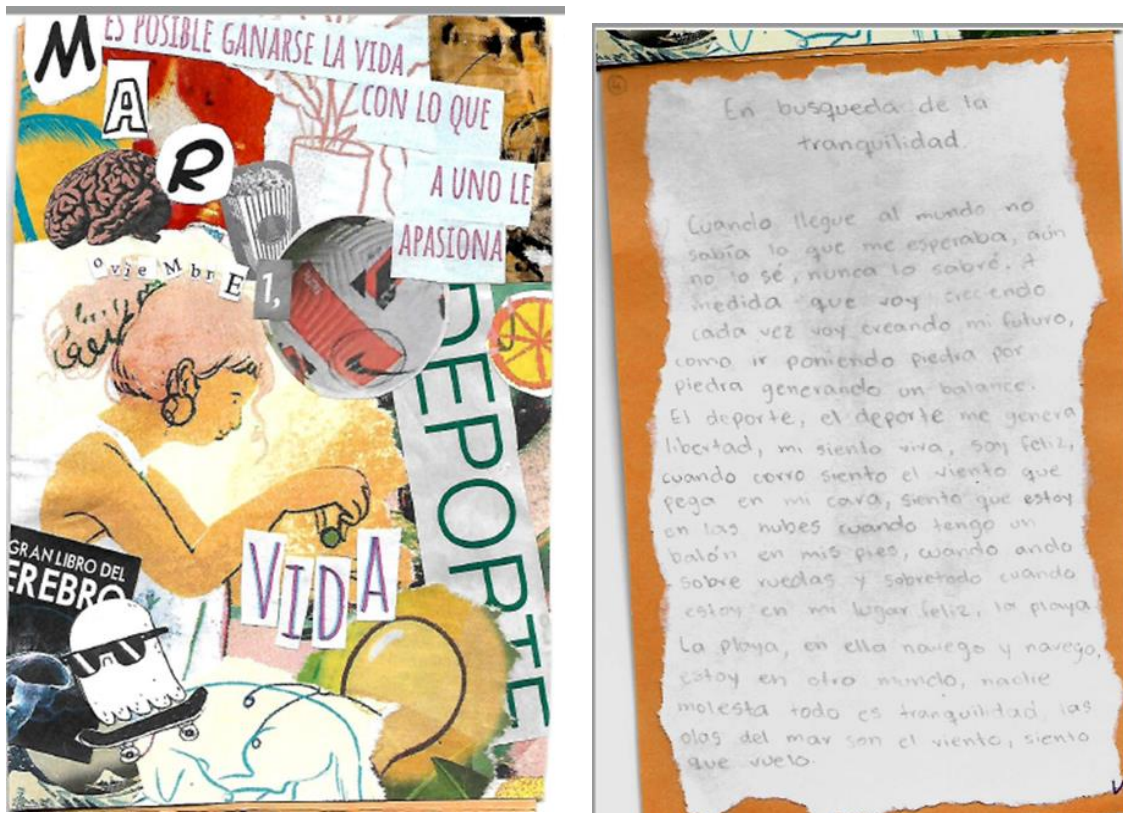 M
A
R
ES POSIBLE GANARSE LA VIDA
CON LO QUE
A UNO LE
APASIONA
ovieMbrE 1,
DEPORTE
VIDA
GRAN LIBRO DEL
EREBRO
En busqueda de la
tranquilidad.
Cuando llegue al mundo no
sabía lo que me esperaba, aún
no lo sé, nunca lo sabré. A
medida que voy creciendo
cada vez voy creando mi futuro,
como ir poniendo piedra por
piedra generando un balance.
El deporte, el deporte me genera
libertad, mi siento viva, soy feliz,
cuando corro siento el viento que
pega en mi cara, siento que estoy
en las nubes cuando tengo un
balón en mis pies, cuando ando
sobre ruedas y sobretodo cuando
estoy en mi lugar feliz, la playa.
La playa, en ella navego y navego,
estoy en otro mundo, nadie
molesta todo es tranquilidad, las
olas del mar son el viento, siento
que vuelo.